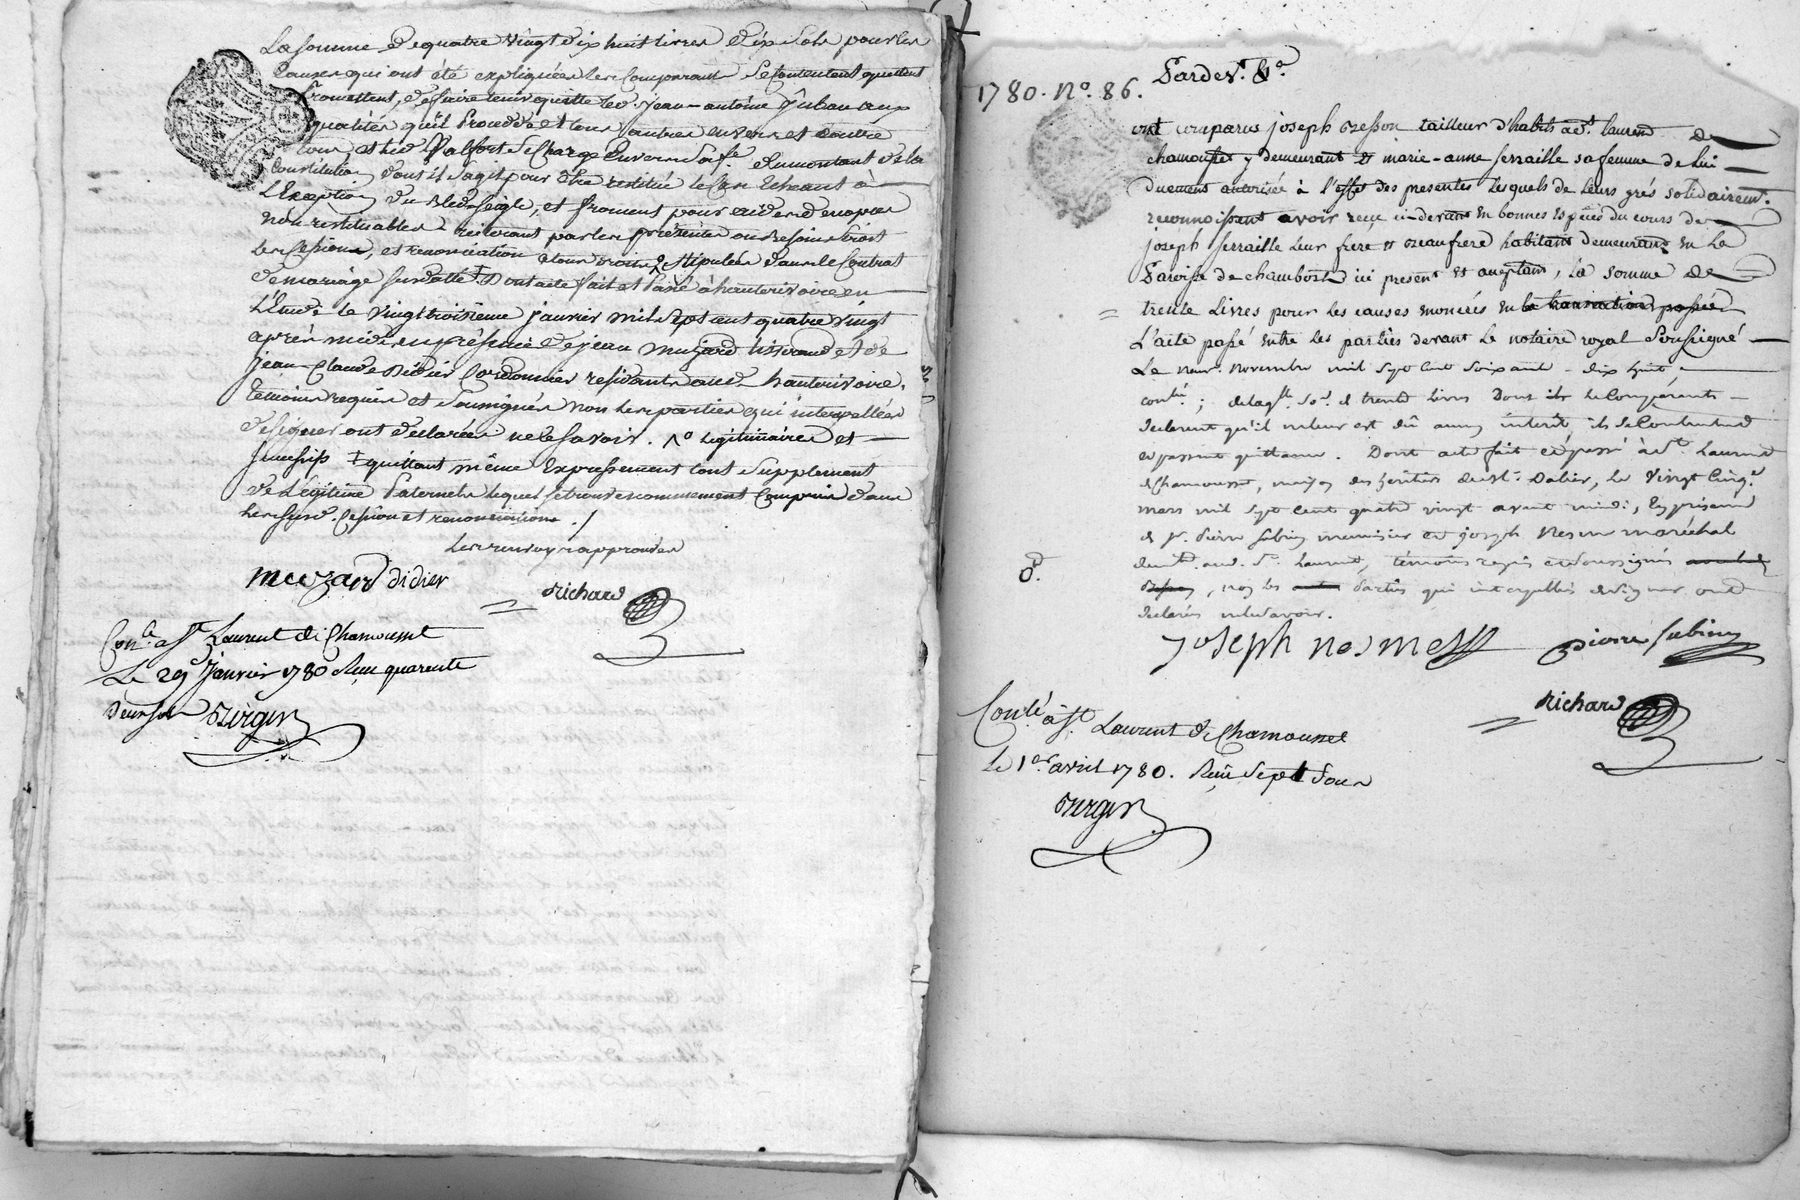 La somme de quatre vingt dix huit livres dix sols pour les
causes qui ont été expliquées les Comparants se Contentent quittent
Promettent, de faire tenir quitte led. jean-antoine
qualités qu'il Procedde et tous autres envers et contre
Constitution dont il s'agit pour être restituée le Cas Echeant à
L'Exception du Bled-Seigle, et froment
non restituables reiterant par les presentes ou Besoin seroit
les Cessions, et renonciation à tous droits stipulées dans le Contrat
de mariage susdatté ‡ Dont acte fait et Passé à hauterivoire en
L'Etude le vingt troisieme janvier mil sept cent quatre vingt
après midi en présence de jean muzard tisserand et de
jean-Claude Didier Cordonnier residants aud. hauterivoire,
temoins requis et soussignés non les parties qui interpellées
de signer ont declarées ne le savoir. 1º Legitimaires et
‡ quittant même Expressement tout supplement
de Légitime Paternelle lequel se trouve Compris dans
les susd. Cession et renonciation ./
les renvoys approuvés
muzard didier
Richard
Con.lé a St Laurent de Chamousset
Le 29 Janvier 1780 Reçu quarente
deux sols
1780. Nº. 86. Pardev.t &a.
ont comparus joseph Besson tailleur d'habits a St. laurend de
chamousset y demeurant et marie-anne ferraille sa femme de lui
duement autorisée à l'effet des presentes Lesquels de Leurs grés solidairem.t
reconnoissent avoir reçu ci-devant en bonnes Espèces du cours de
joseph ferraille Leur frere et Beaufrere habitant demeurant en La
Paroisse de chambost ici present et aceptant, La somme de
trente Livres pour les causes enoncées en la transaction passée
L'acte passé Entre les parties devant Le notaire royal Soussigné
Le neuf Novembre mil Sept Cent Soixante - dix huit
con.lé ; delaq.lle so.e de trente Livres Dont ils Le Comparants
declarent qu'il ne leur est dû aucun intérêt, ils se Contentent
et passent quittance. Dont acte fait et passé à St. Laurent
de Chamousset, maison des heritiers du Sr. Dalier, Le Vingt Cinq.e
mars mil Sept Cent quatre vingt avant midi, En présence
de Sr. Pierre Subrin menuisier et joseph Nesme maréchal
dem.t aud. St. Laurent, témoins requis et soussignés
, non les Parties qui interpellées de signer ont
declarés ne le savoir.
joseph nesme
pierre Subrin
Richard
Con.lé à St. Laurent de Chamousset
Le 1er. avril 1780. Reçu Sept Sous